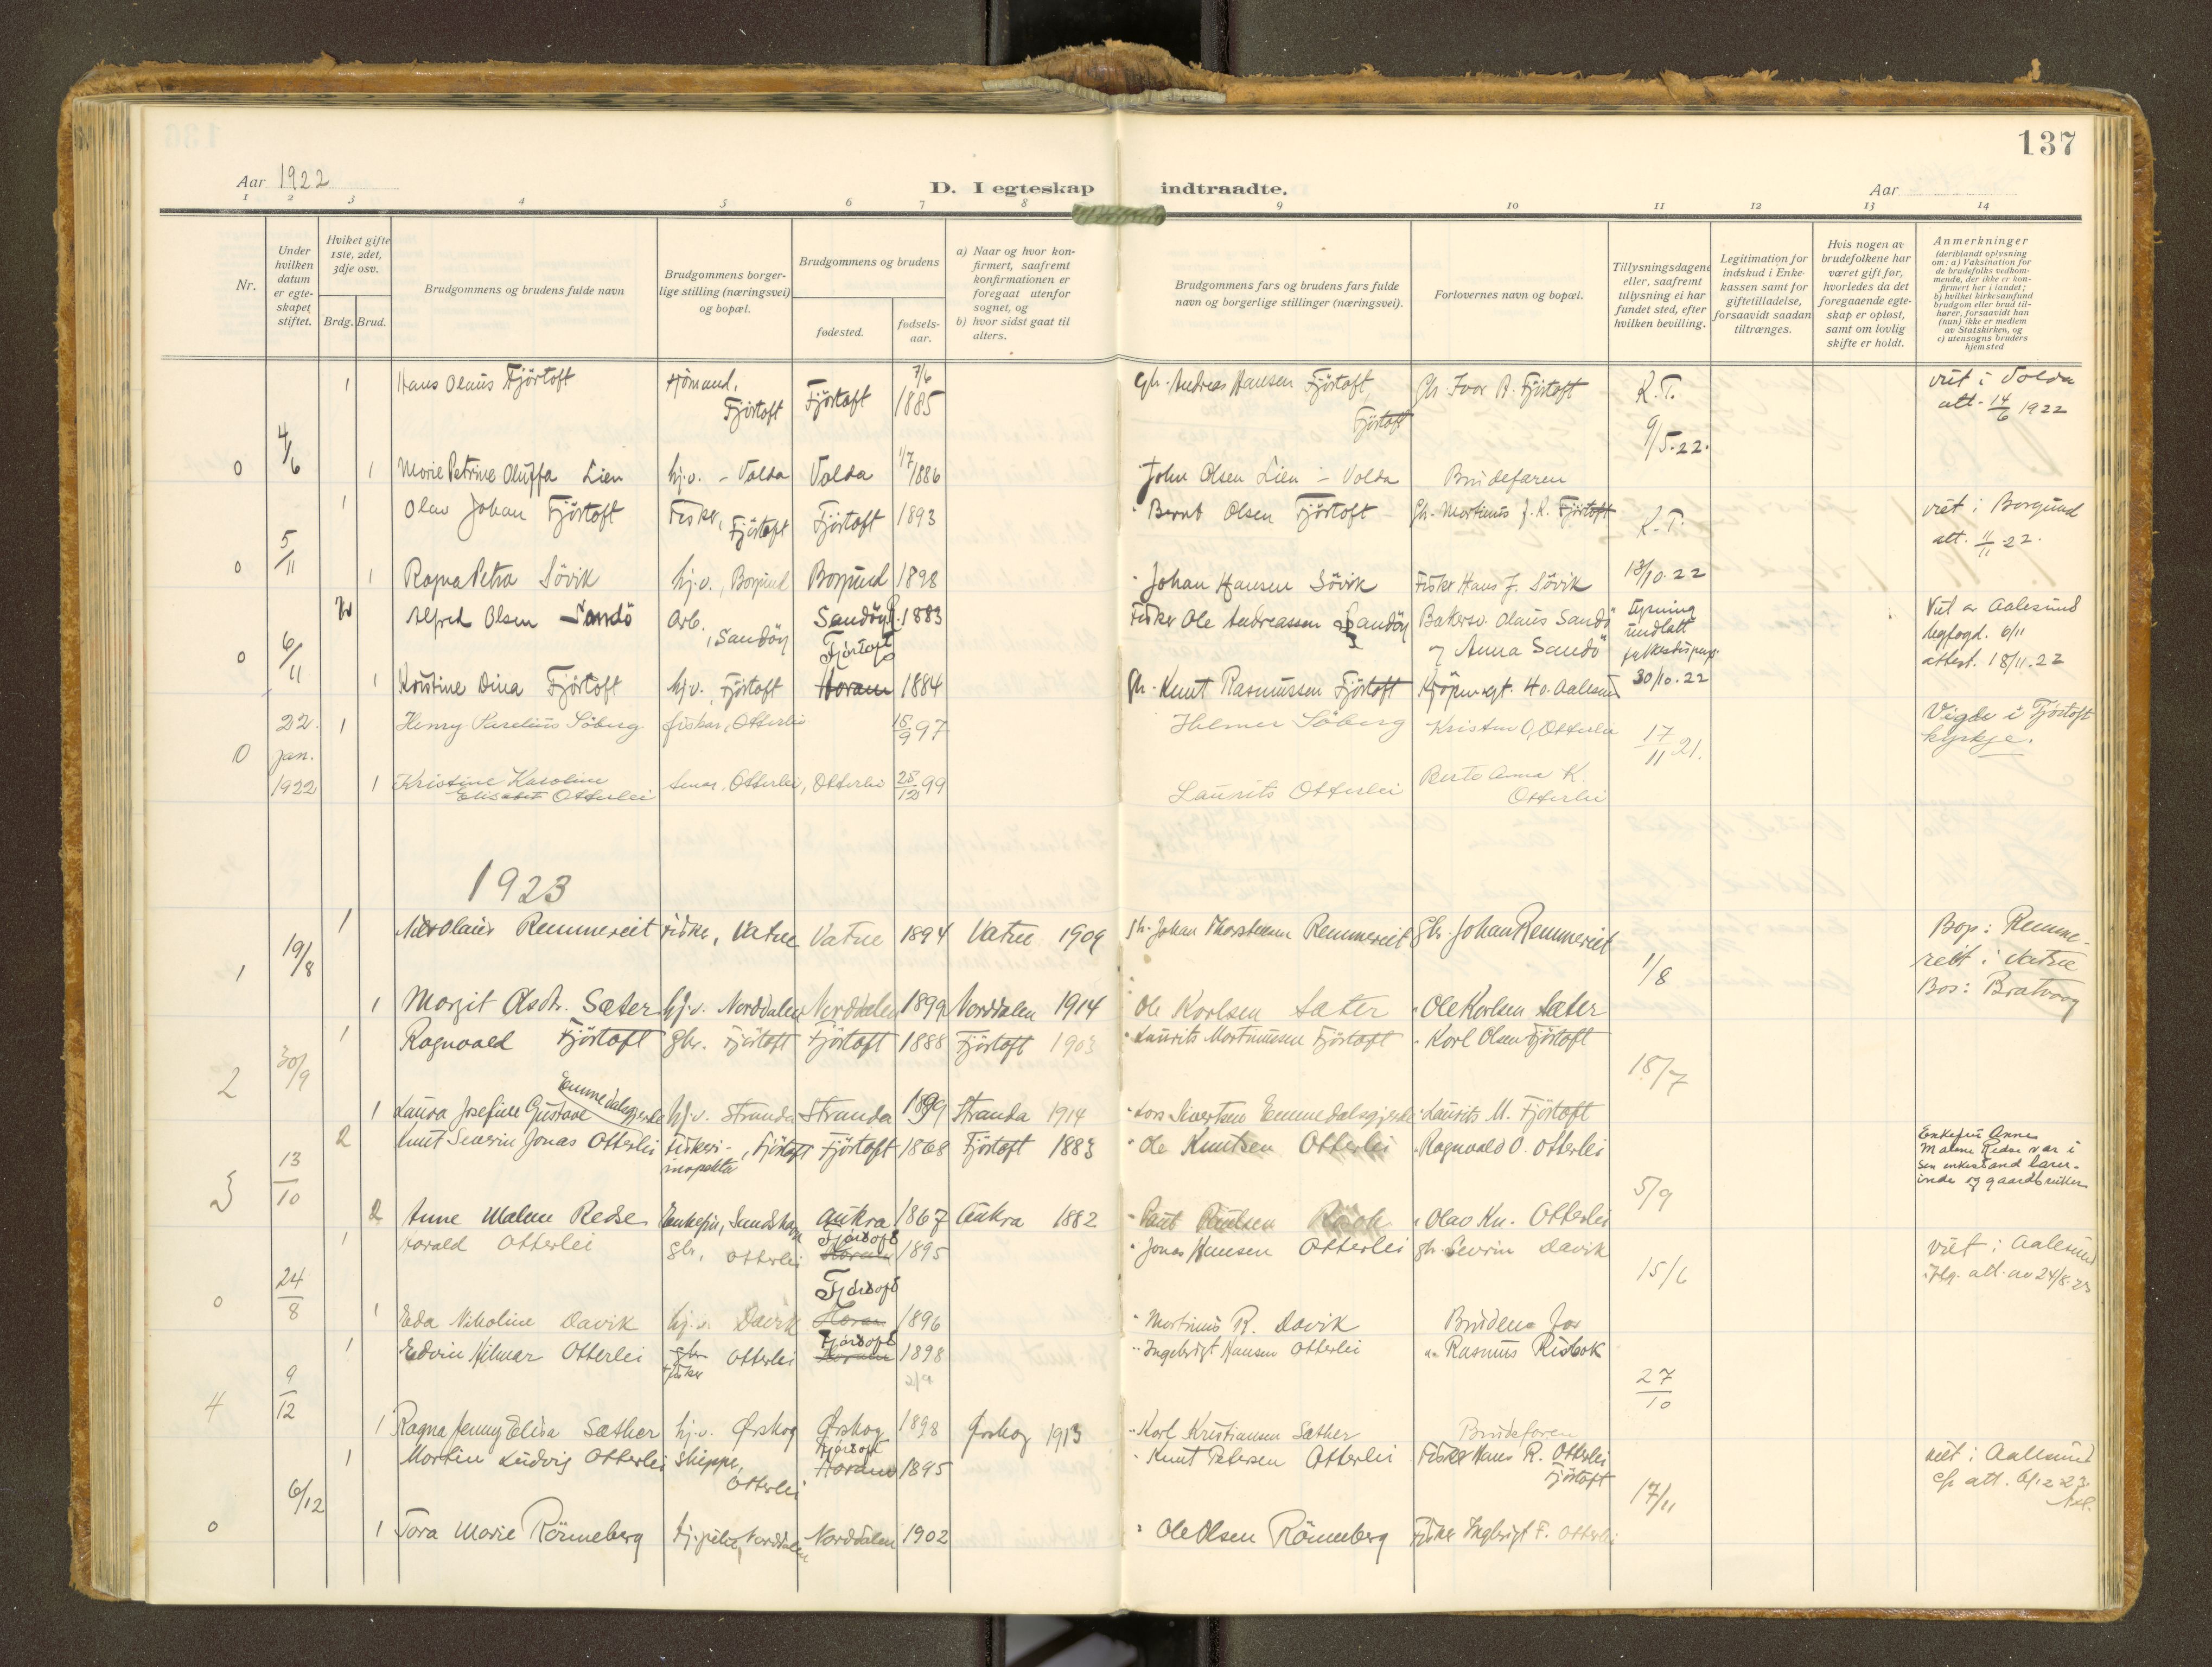 137
Aar 1922
D. I egteskap indtraadte.
Aar
1 2 3 4 5 6 7 8 9 10 11 12 13 14
Nr.
Under hvilken datum er egteskapet stiftet.
Hviket gifte 1ste, 2det, 3dje osv.
Brdg. Brud.
Brudgommens og brudens fulde navn
Brudgommens borgerlige stilling (næringsvei) og bopæl.
Brudgommens og brudens
fødested.
fødselsaar.
a) Naar og hvor konfirmert, saafremt konfirmationen er foregaat utenfor sognet, og
b) hvor sidst gaat til alters.
Brudgommens fars og brudens fars fulde navn og borgerlige stillinger (næringsvei).
Forlovernes navn og bopæl.
Tillysningsdagene eller, saafremt tillysning ei har fundet sted, efter hvilken bevilling.
Legitimation for indskud i Enkekassen samt for giftetilladelse, forsaavidt saadan tiltrænges.
Hvis nogen av brudefolkene har været gift før, hvorledes da det foregaaende egteskap er opløst, samt om lovlig skifte er holdt.
Anmerkninger (deriblandt oplysning om: a) Vaksination for de brudefolks vedkommende, der ikke er konfirmert her i landet; b) hvilket kirkesamfund brudgom eller brud tilhører, forsaavidt han (hun) ikke er medlem av Statskirken, og c) utensogns bruders hjemsted
1 Hans Olaus Fjörtoft Fjörtoft Fjörtoft 7/6 1885 Gbr. Andreas Hansen Fjörtoft, Fjörtoft Gbr. Ivar A. Fjörtoft K.T. viet i Volda
att. 14/6 1922
4/6 9/5.22.
0 1 Marie Petrine Oluffa Lien hj.v. - Volda Volda 1/7 1886 John Olsen Lien - Volda Brudefaren
1 Olav Johan Fjörtoft Fisker, Fjörtoft Fjörtoft 1893 " Bernt Olsen Fjörtoft Gbr. Martinus J. K. Fjörtoft K.T. viet i Borgund
att. 11/11 22.
5/11
0 1 Ragna Petra Sövik hj.v., Borgund Borgund 1898 " Johan Hansen Sövik Fisker Hans J. Sövik 13/10.22
2 Alfred Olsen Sandö Arb., Sandöy Sandöy 1883 Fisker Ole Andreassen Sandöy Bakersv. Olaus Sandö lysning Viet av Aalesund
og Anna Sandö undlatt byfogd. 6/11
6/11 attest. 18/11.22
0 1 Kristine Dina Fjörtoft hj.v. Fjörtoft Fjörtoft Haram 1884 Gbr. Knut Rasmussen Fjörtoft 30/10.22
22. 1 Henry Parelius Söberg fiskar, Otterlei 18/9 97 Helmer Söberg Kristen O. Otterlei 17/11 21. Vigde i Fjörtoft
kyrkje.
0 jan.
1922 1 Kristine Karoline Elisabet Otterlei tenar, Otterlei, Otterlei 28/12 99 Laurits Otterlei Berte Anna K. Otterlei
1923
1 Nikolaus Remmereit Fisker, Vatne Vatne 1894 Vatne 1909 Gbr. Johan Thorsteinsen Remmereit Gbr. Johan Remmereit Bop: Remmereit i Vatne
19/8 1/8
1 1 Margit Olsdtr. Sæter hj.v. Norddalen Norddalen 1899 Norddalen 1914 Ole Karlsen Sæter " Ole Karlsen Sæter Bos: Bratvaag
1 Ragnvald Fjörtoft Gbr. Fjörtoft Fjörtoft 1888 Fjörtoft 1903 " Laurits Martinussen Fjörtoft " Karl Olsen Fjörtoft
30/9 18/7
2 1 Laura Josefine Gustave Emmedalsgjerde hj.v. Stranda Stranda 1899 Stranda 1914 " Lars Sivertsen Emmedalsgjerde " Laurits M. Fjörtoft
2 Knut Severin Jonas Otterlei Fiskeri-inspektör, Fjörtoft Fjörtoft 1868 Fjörtoft 1883 " Ole Knutsen Otterlei " Ragnvald O. Otterlei Enkefru Anne
Malene Redse var i
sin enkestand lærerinde og gaardbruker
13/10 5/9
3 2 Anne Malene Redse Enkefru, Aukra 1867 Aukra 1882 " Paul Paulsen " Olav Kn. Otterlei
1 Harald Otterlei Gbr. Otterlei Fjörtoft Haram 1895 " Jonas Hansen Otterlei Gbr. Severin Davik viet i Aalesund
att. av 24/8.23
24/8 15/6
0 1 Eda Nikoline Davik hj.v. Davik Fjörtoft Haram 1896 " Martinus R. Davik Brudens far
1 Edvin Hilmar Otterlei gbr. fisker Otterlei Fjörtoft Haram 1898 2/9 " Ingebrigt Hansen Otterlei " Rasmus Risbak
9/12 27/10
4 1 Ragna Jenny Elisa Sæther hj.v. Ørskog Ørskog 1898 Ørskog 1913 " Karl Kristiansen Sæther Brudefaren
1 Martin Ludvig Otterlei Skipper, Otterlei Fjörtoft Haram 1895 " Knut Petersen Otterlei Fisker Hans R. Otterlei Fjörtoft viet i Aalesund
att. 6/12 23.
6/12 17/11
0 1 Tora Marie Rönneberg Norddalen Norddalen 1902 " Ole Olsen Rönneberg Fisker Ingebrigt F. Otterlei